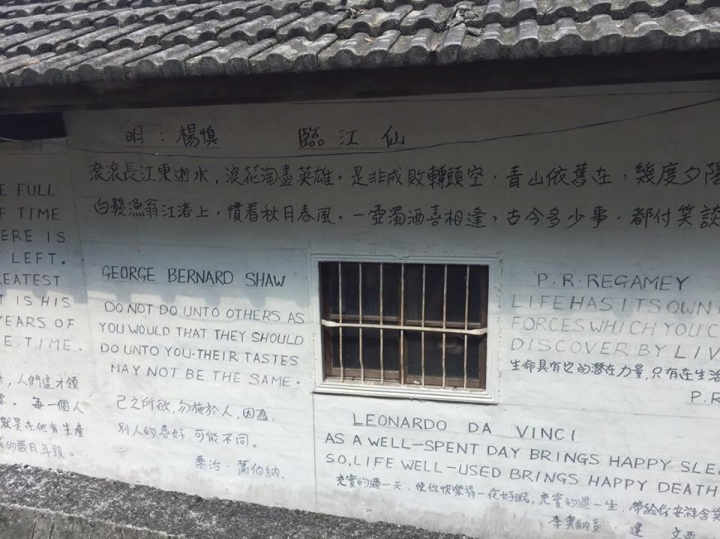 明:楊慎 臨江仙
滾滾長江東逝水,浪花淘盡英雄。是非成敗轉頭空,青山依舊在,幾度夕陽
白髮漁翁江渚上,慣看秋月春風。一壺濁酒喜相逢,古今多少事,都付笑談
E FULL
F TIME
ERE IS
LEFT.
REATEST
T IS HIS
YEARS OF
E TIME.
人們這才領
每一個人
就是在他有生產
的歲月
GEORGE BERNARD SHAW
DO NOT DO UNTO OTHERS AS
YOU WOULD THAT THEY SHOULD
DO UNTO YOU.THEIR TASTES
MAY NOT BE THE SAME.
己之所欲,勿施於人,因為,
別人的喜好,可能不同。
喬治.蕭伯納.
P.R.REGAMEY
LIFE HAS ITS OWN
FORCES WHICH YOU C
DISCOVER BY LIV
生命具有它的潛在力量,只有在生活
P.R
LEONARDO DA VINCI
AS A WELL-SPENT DAY BRINGS HAPPY SLE
SO, LIFE WELL-USED BRINGS HAPPY DEATH
充實的過一天,使你快樂得一夜好眠,充實的過一生,帶給你安祥
李奧納多.達文西